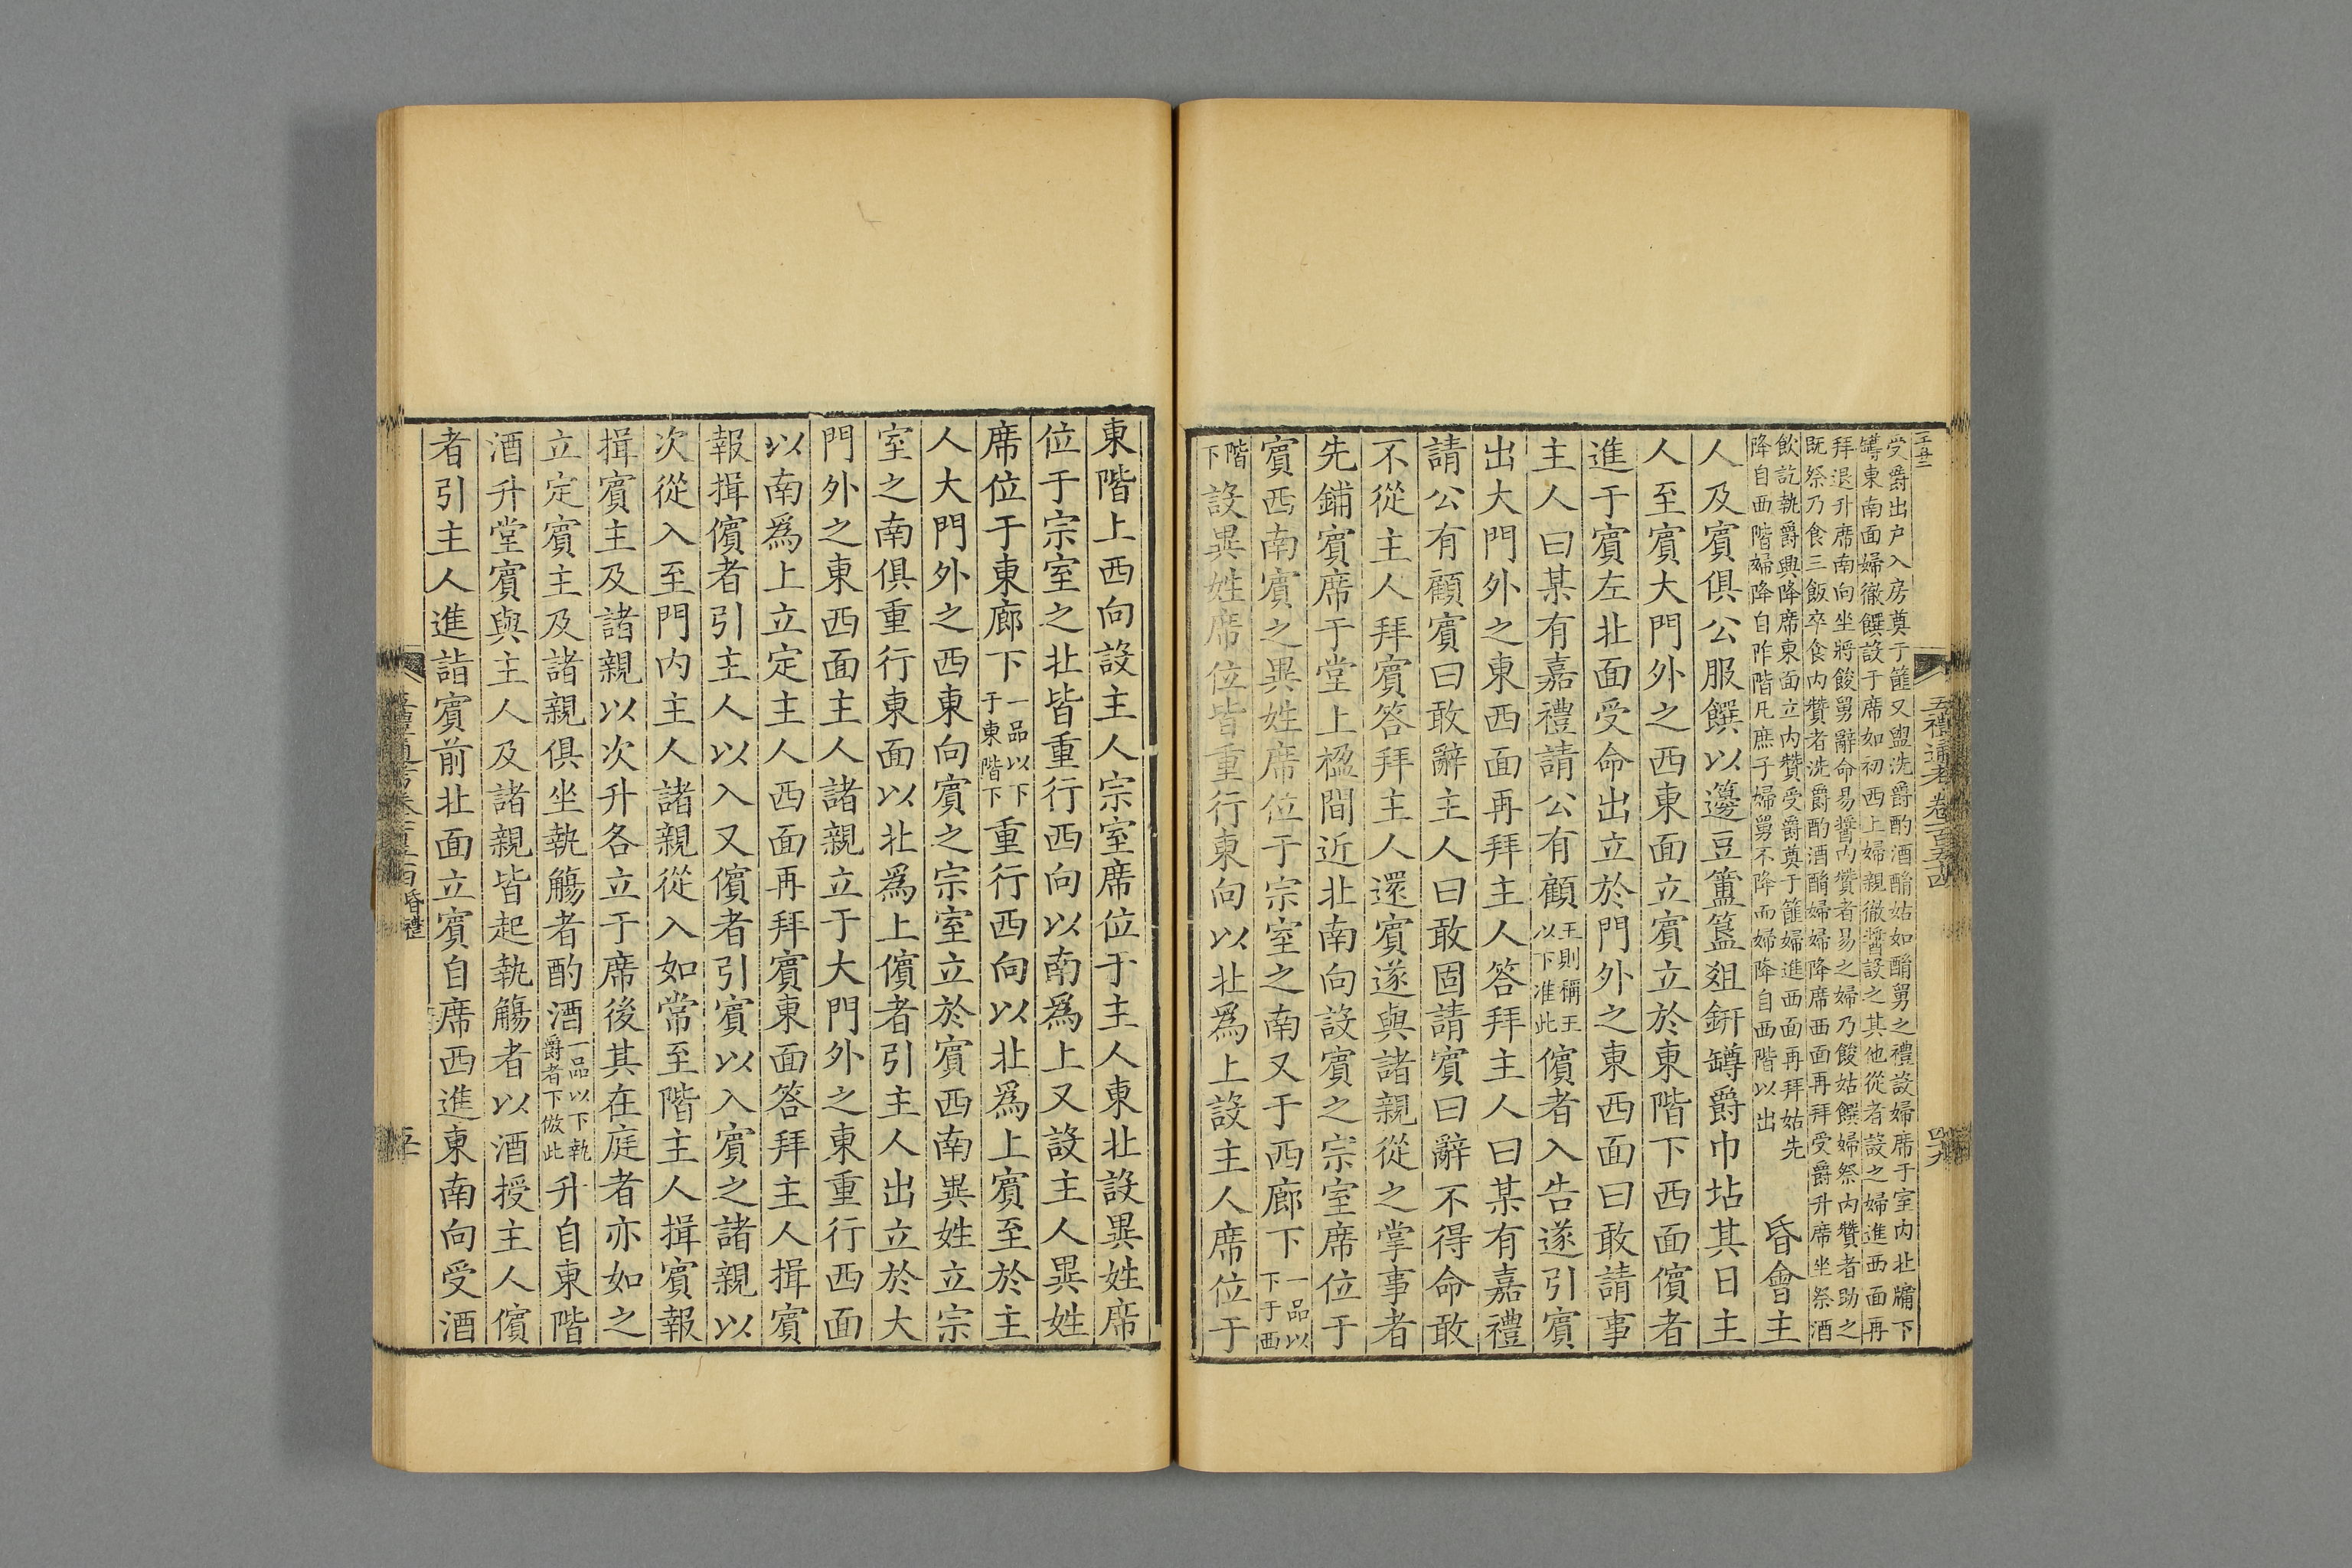 受爵出户入房奠于篚又盥洗爵酌酒酳姑如酳舅之禮設婦席于室内北牗下
罇東南面婦徹饌設于席如初西上婦親徹醬設之其他從者設之婦進西面再
拜退升席南向坐將餕舅辭命易醬内贊者易之婦乃餕姑饌婦祭内贊者助之
既祭乃食三飯卒食内贊者洗爵酌酒酳婦婦降席西面再拜受爵升席坐祭酒
飲訖執爵興降席東面立内贊受爵奠于篚婦進西面再拜姑先
降自西階婦降自阼階凡庶子婦舅不降而婦降自西階以出
昏會主
人及賓俱公服饌以籩豆簠簋俎鈃罇爵巾坫其日主
人至賓大門外之西東面立賓立於東階下西面儐者
進于賓左北面受命出立於門外之東西面曰敢請事
主人曰某有嘉禮請公有顧王則稱王以下准此儐者入告遂引賓
出大門外之東西面再拜主人答拜主人曰某有嘉禮
請公有顧賓曰敢辭主人曰敢固請賓曰辭不得命敢
不從主人拜賓答拜主人還賓遂與諸親從之掌事者
先鋪賓席于堂上楹間近北南向設賓之宗室席位于
賓西南賓之異姓席位于宗室之南又于西廊下一品以下于西
階下設異姓席位皆重行東向以北為上設主人席位于
五禮通考卷二百五十四
四十九
東階上西向設主人宗室席位于主人東北設異姓席
位于宗室之北皆重行西向以南為上又設主人異姓
席位于東廊下一品以下于東階下重行西向以北為上賓至於主
人大門外之西東向賓之宗室立於賓西南異姓立宗
室之南俱重行東面以北為上儐者引主人出立於大
門外之東西面主人諸親立于大門外之東重行西面
以南為上立定主人西面再拜賓東面答拜主人揖賓
報揖儐者引主人以入又儐者引賓以入賓之諸親以
次從入至門内主人諸親從入如常至階主人揖賓報
揖賓主及諸親以次升各立于席後其在庭者亦如之
立定賓主及諸親俱坐執觴者酌酒一品以下執爵者下倣此升自東階
酒升堂賓與主人及諸親皆起執觴者以酒授主人儐
者引主人進詣賓前北面立賓自席西進東南向受酒
昏禮
五十